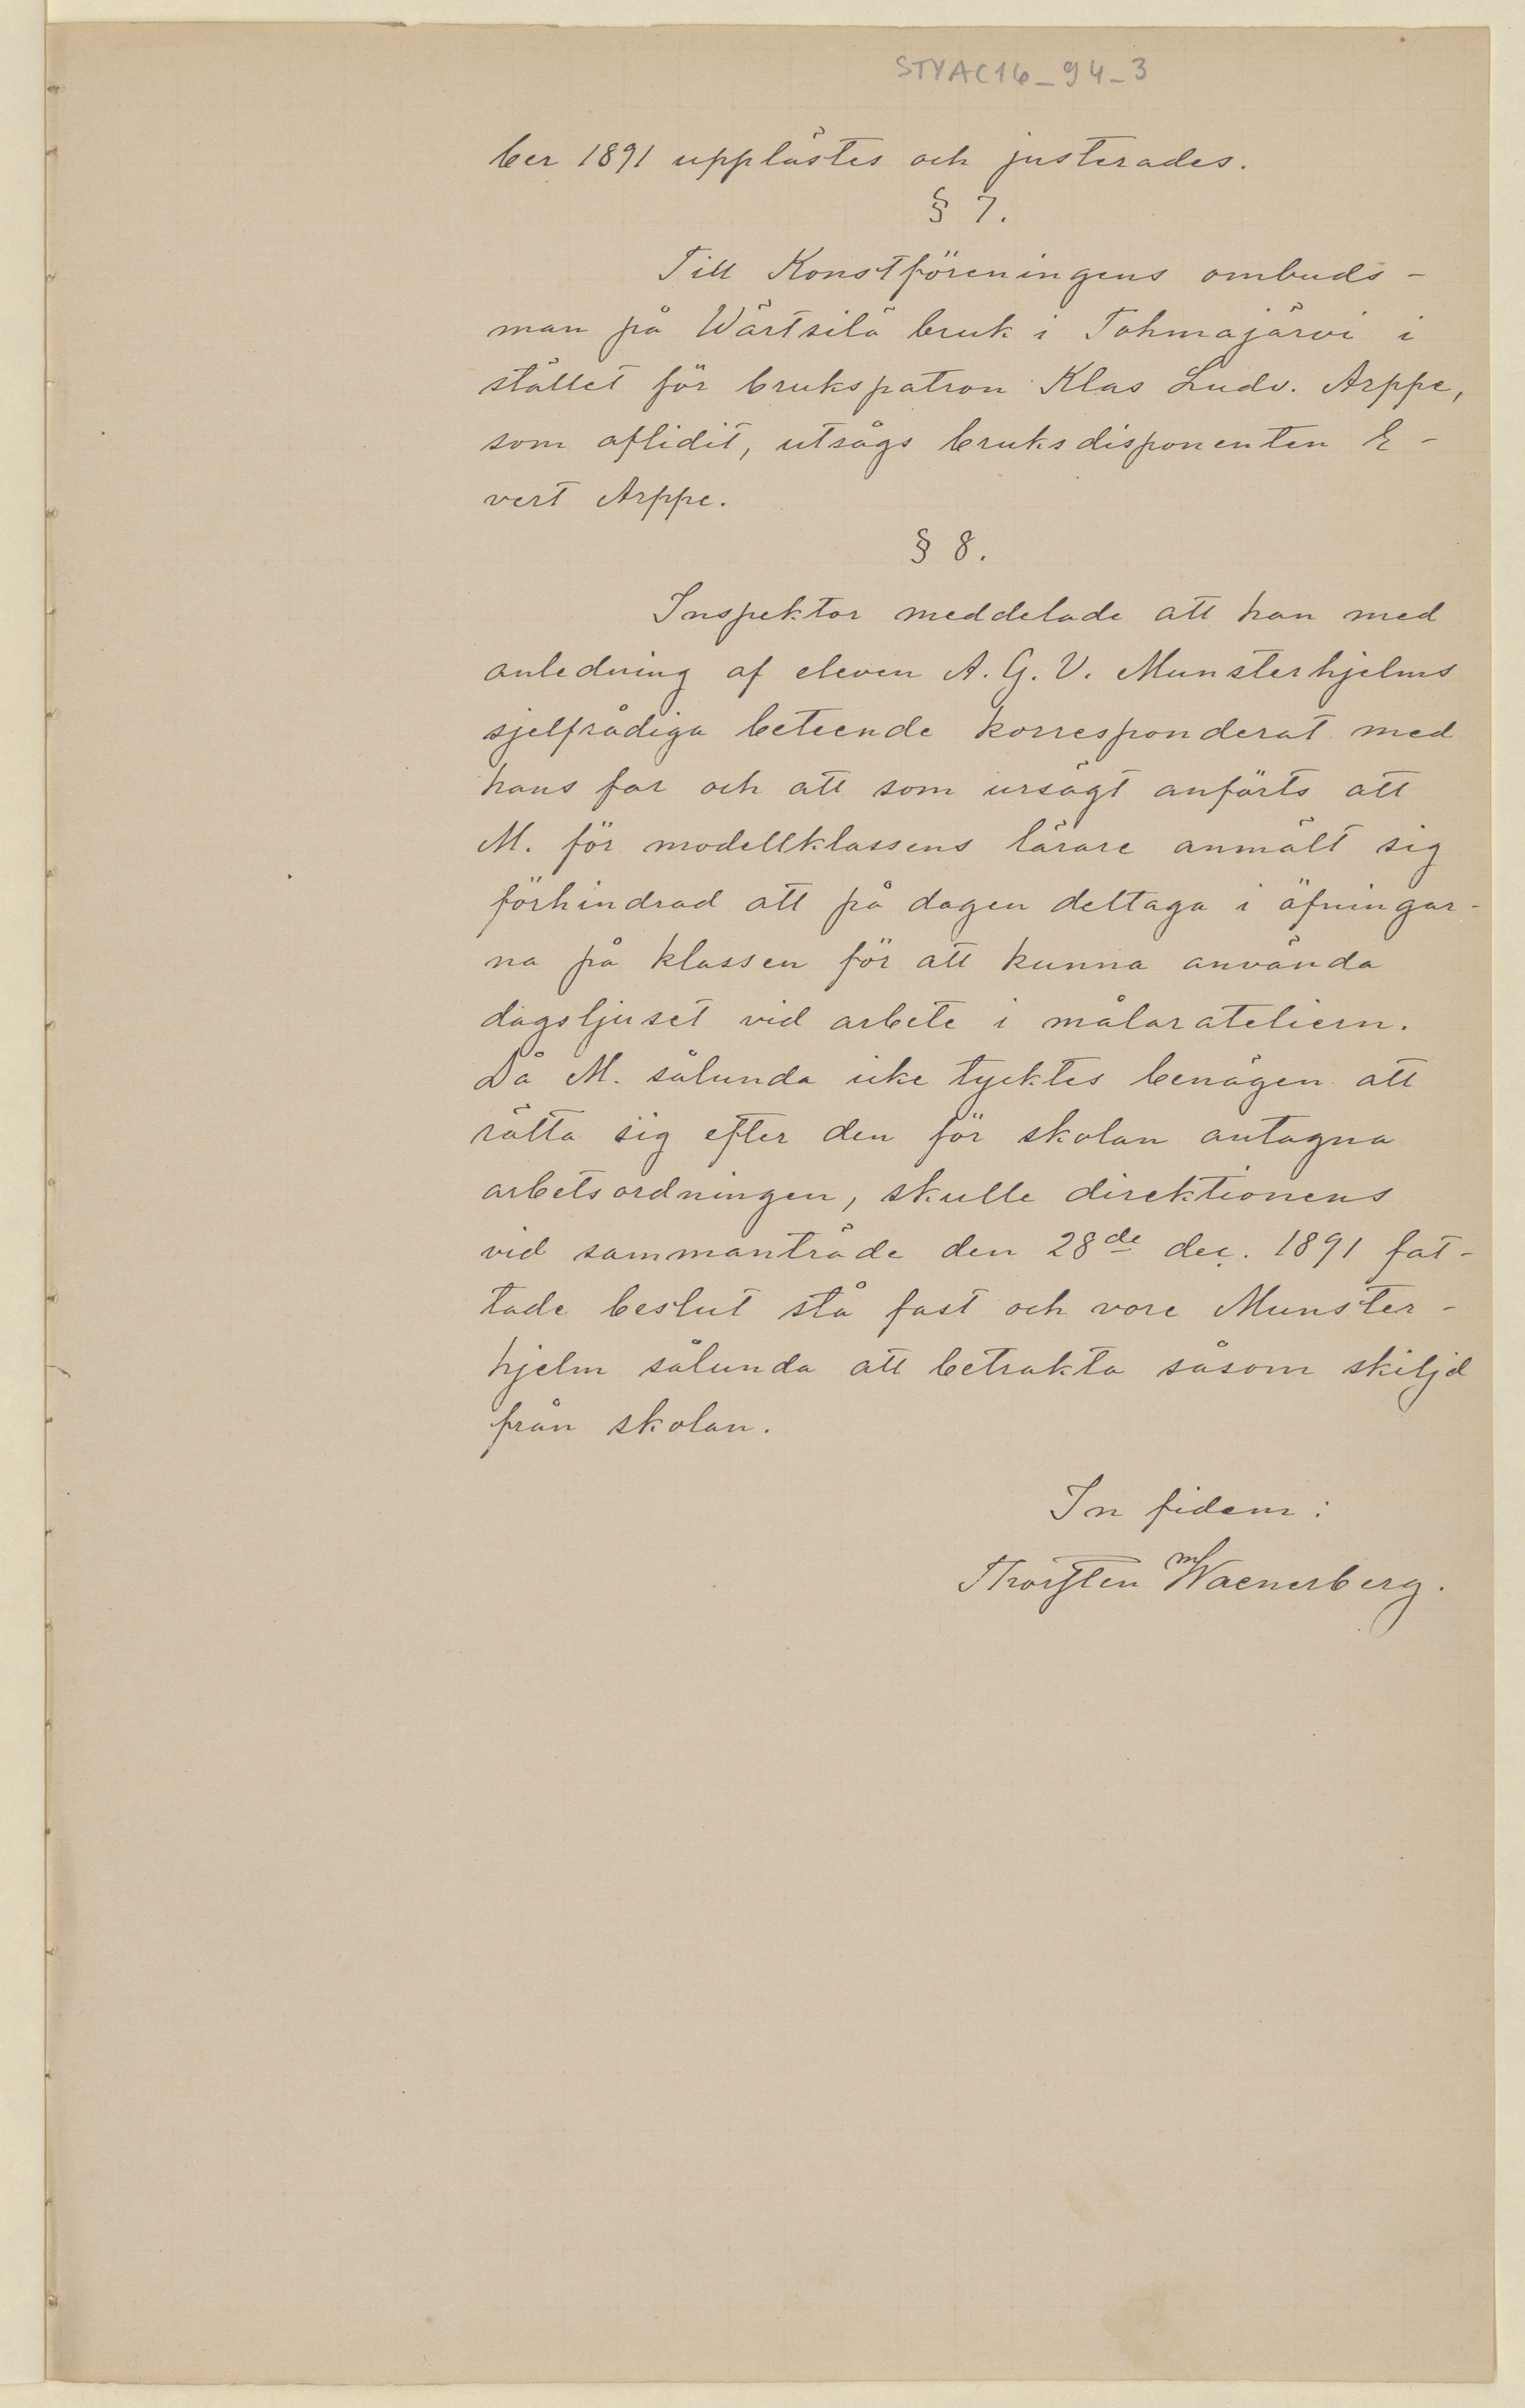 STYAC16_94_3
ber 1891 upplästes och justerades.
§ 7.
Till Konstföreningens ombuds-
man på Wärtsilä bruk i Tohmajärvi i
stället för brukspatron Klas Ludv. Arppe,
som aflidit, utsågs bruksdisponenten E-
vert Arppe.
§ 8.
Inspektor meddelade att han med
anledning af eleven A. G. V. Munsterhjelms
sjelfrådiga beteende korresponderat med
hans far och att som ursägt anförts att
M. för modellklassens lärare anmält sig
förhindrad att på dagen deltaga i öfningar-
na på klassen för att kunna använda
dagsljuset vid arbete i målarateliern.
Då M. sålunda icke tycktes benägen att
rätta sig efter den för skolan antagna
arbetsordningen, skulle direktionens
vid sammanträde den 28de dec. 1891 fat-
tade beslut stå fast och vore Munster-
hjelm sålunda att betrakta såsom skiljd
från skolan.
In fidem:
Thorsten Waenerberg.